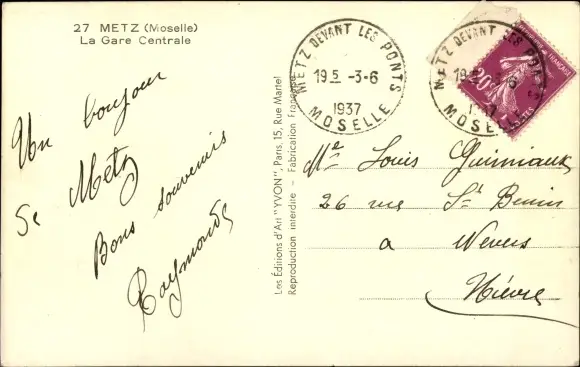 27 METZ (Moselle)
La Gare Centrale
Un bonjour
de Metz
Bons souvenirs
Raymonde
Les Editions d'Art "YVON", Paris, 15, Rue Martel
Reproduction interdite - Fabrication Française
METZ DEVANT LES PONTS
19 5 -3-6
1937
MOSELLE
METZ DEVANT LES PONTS
19 5 -3-6
1937
MOSELLE
20c
POSTES
Me Louis
26 rue St Benin
a Nevers
Nièvre